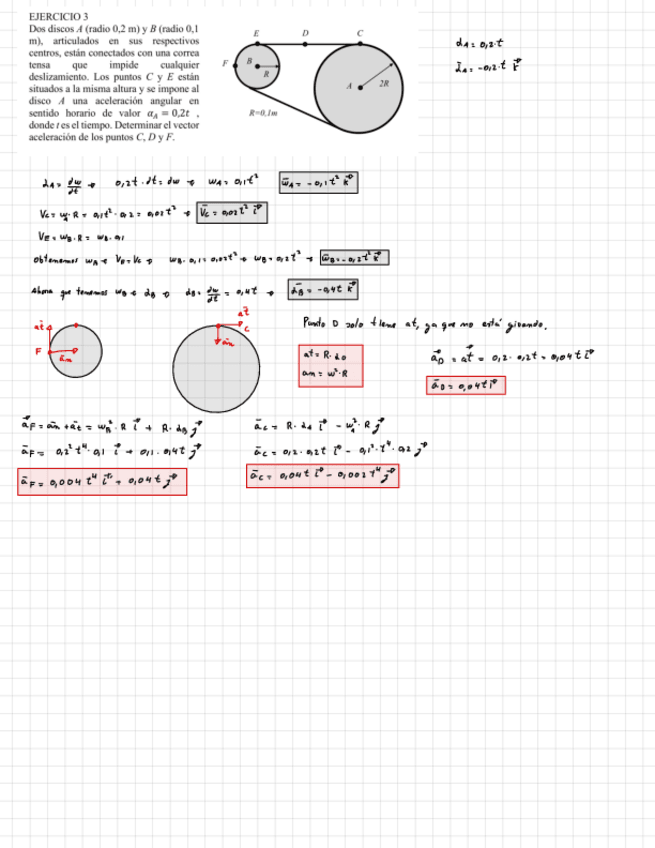 EJERCICIO 3
Dos discos A (radio 0,2 m) y B (radio 0,1
m), articulados en sus respectivos
centros, están conectados con una correa
tensa que impide cualquier
deslizamiento. Los puntos C y E están
situados a la misma altura y se impone al
disco A una aceleración angular en
sentido horario de valor αA = 0,2t ,
donde t es el tiempo. Determinar el vector
aceleración de los puntos C, D y F.
E D C
F B R A 2R
R=0,1m
αA = 0,2·t
ᾱA = -0,2·t k⃗
αA = dw/dt → 0,2t·dt = dw → wA = 0,1t² w̄A = -0,1t² k⃗
Vc = wA·R = 0,1t²·0,2 = 0,02t² → V̄c = 0,02t² i⃗
VE = wB·R = wB·0,1
obtenemos wB → VE = Vc → wB·0,1 = 0,02t² → wB = 0,2t² → w̄B = -0,2t² k⃗
Ahora que tenemos wB → αB → αB = dw/dt = 0,4t → ᾱB = -0,4t k⃗
at F an
at C an
at = R·α
an = w²·R
Punto D solo tiene at, ya que no está girando.
a⃗D = a⃗t = 0,2·0,2t = 0,04t i⃗
āD = 0,04t i⃗
a⃗F = ān + āt = wB²·R i⃗ + R·αB j⃗
āF = 0,2² t⁴·0,1 i⃗ + 0,1·0,4t j⃗
āF = 0,004 t⁴ i⃗ + 0,04t j⃗
āc = R·αA i⃗ - wA²·R j⃗
āc = 0,2·0,2t i⃗ - 0,1²·t⁴·0,2 j⃗
āc = 0,04t i⃗ - 0,002t⁴ j⃗